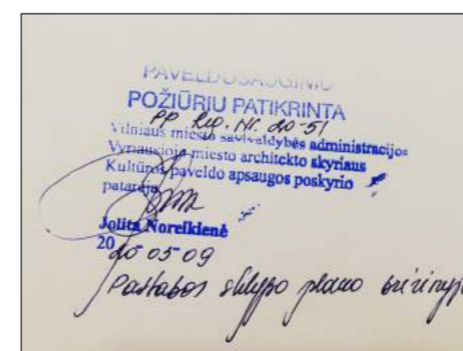 PAVELDOSAUGINIU
POŽIŪRIU PATIKRINTA
PP Reg. Nr. 20-51
Vilniaus miesto savivaldybės administracijos
Vyriausiojo miesto architekto skyriaus
Kultūros paveldo apsaugos poskyrio
patarėja
Jolita Noreikienė
2020 05 09
Pastabos sklypo plano